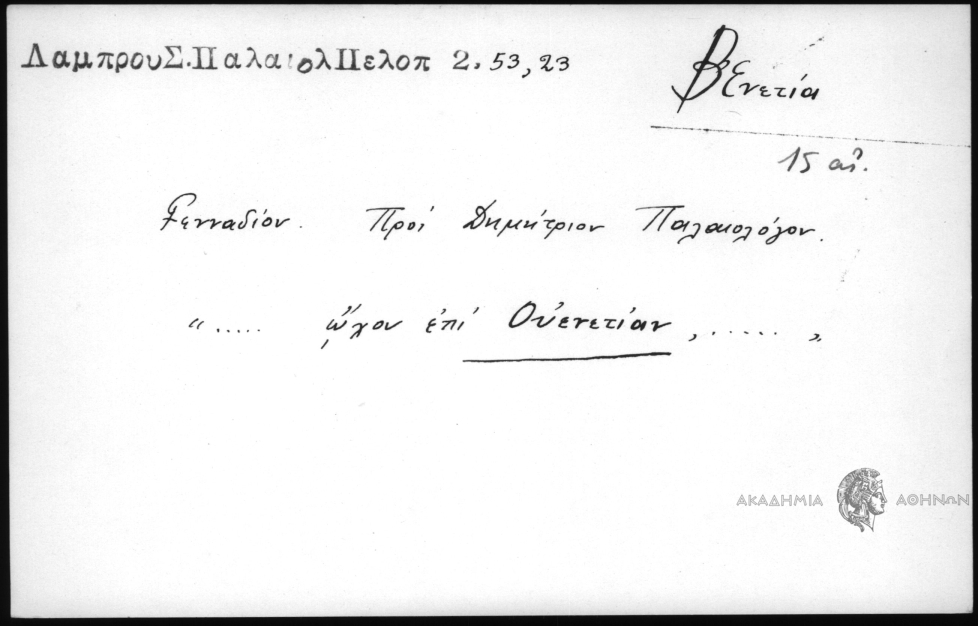 ΛαμπρουΣ.ΠαλαιολΠελοπ 2.53,23
Βενετία
15 αἰ.
Γενναδίου. Πρὸς Δημήτριον Παλαιολόγον.
“ ..... ᾤχου ἐπὶ Οὐενετίαν, ..... „
ΑΚΑΔΗΜΙΑ ΑΘΗΝΩΝ